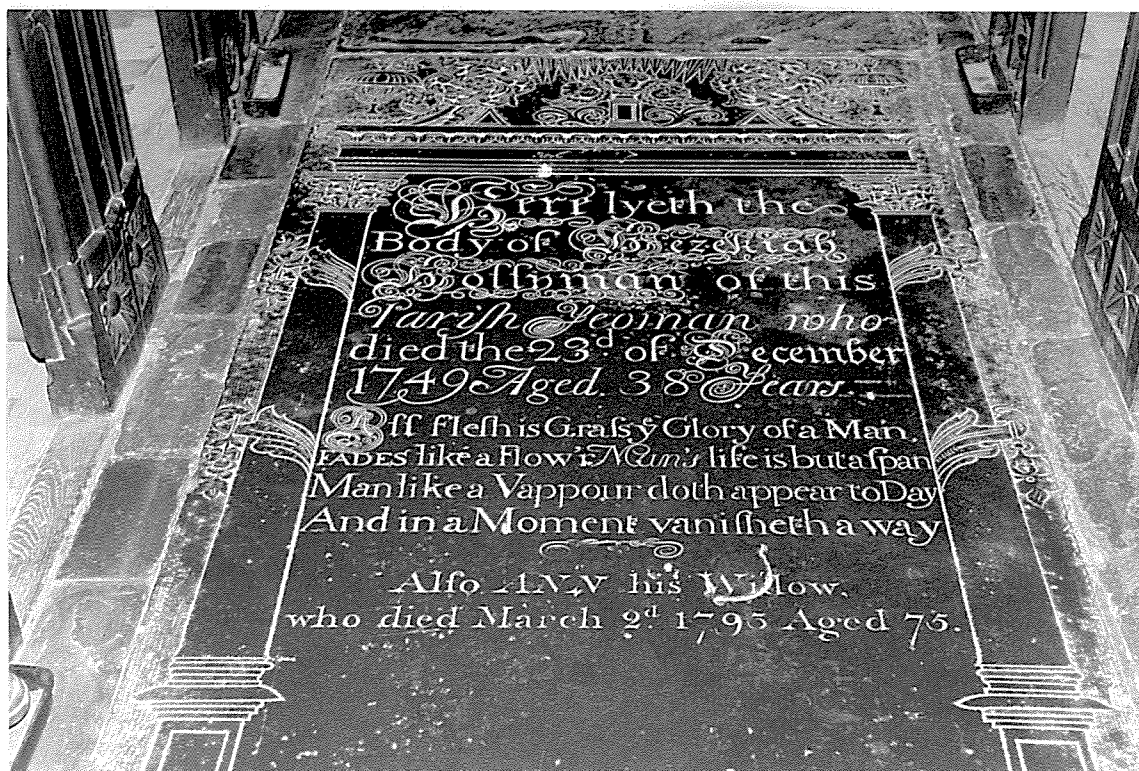 Here lyeth the
Body of Hezekiah
Hollyman of this
Pariſh Yeoman who
died the 23d of December
1749 Aged 38 Years.—
All Fleſh is Graſs yᵉ Glory of a Man,
FADES like a Flow'r Man's life is but a ſpan
Man like a Vappour doth appear to Day
And in a Moment vaniſheth a way
Alſo ANN his Widow,
who died March 2d 1795 Aged 75.